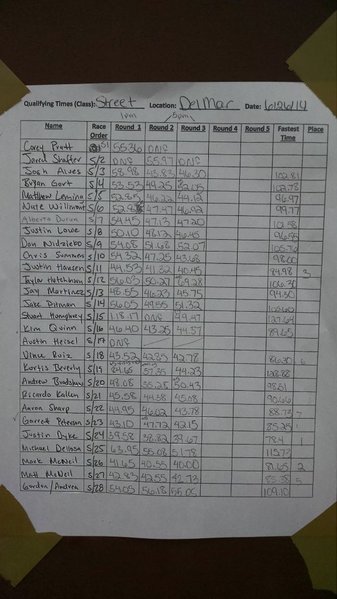 Qualifying Times (Class): Street Location: Del Mar Date: 6/26/14
1pm 5pm
Name Race Order Round 1 Round 2 Round 3 Round 4 Round 5 Fastest Time Place
Corey Pratt S1 55.36 DNS
Jared Shafter S/2 DNS 55.97 DNS
Josh Alves S/3 58.98 45.83 46.30 102.81
Bryan Gort S/4 53.53 49.25 102.78
Matthew Leming S/5 52.85 46.22 44.12 96.97
Nate S/6 47.47 46.92 99.77
Alberto S/7 54.45 47.13 47.20
Justin Lowe S/8 50.10 48.12 46.45
Dan S/9 54.08 51.68 52.07
Chris Summers S/10 54.32 47.25 43.68 98.00
Justin Hansen S/11 44.53 41.32 40.45 84.98 3
Taylor Hutchinson S/12 56.03 50.27 69.28 106.30
Jay Martinez S/13 46.23 45.75
Jake Pitman S/14 56.05 49.55 51.32
Stuart Humphrey S/15 1:18.17 DNS 49.47 127.64
Kim Quinn S/16 46.40 43.25 44.57 89.65
Austin Heisel S/17 DNS
Vince Ruiz S/18 43.52 42.83 42.78 86.30
Kurtis Beverly S/19 84.65 57.35 44.23
Andrew Bradshaw S/20 48.08 55.28 50.43 98.51
Ricardo Kallen S/21 45.58 44.58 45.08 90.66
Aaron Sharp S/22 44.95 46.02 43.78 88.73 7
Garrett Peterson S/23 43.10 47.72 42.15 85.25
Justin Dyke S/24 39.58 38.82 39.67 78.4 1
Michael Dellosa S/25 63.95 55.08 51.78 115.73
Mark McNeil S/26 41.65 40.55 40.00 81.65 2
Matt McNeil S/27 42.83 42.55 42.73 5
Gordon/Andrea S/28 54.05 56.18 55.05 109.10